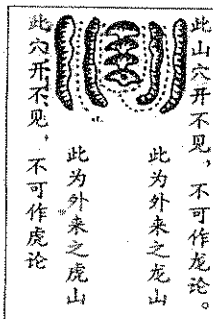 此山穴开不见，不可作龙论。
此为外来之龙山
此为外来之虎山
此穴开不见，不可作虎论